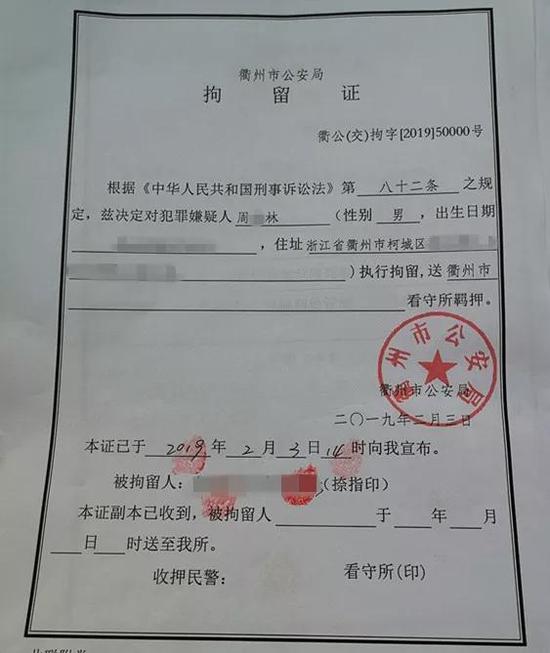 衢州市公安局
拘留证
衢公(交)拘字[2019]50000号
根据《中华人民共和国刑事诉讼法》第 八十二条 之规
定，兹决定对犯罪嫌疑人 周 林 (性别 男 ，出生日期
，住址 浙江省衢州市柯城区
)执行拘留，送 衢州市
看守所羁押。
衢州市公安局
衢州市公安局
二〇一九年二月三日
本证已于 2019 年 2 月 3 日 14 时向我宣布。
被拘留人： (捺指印)
本证副本已收到，被拘留人 于 年 月
日 时送至我所。
收押民警： 看守所(印)